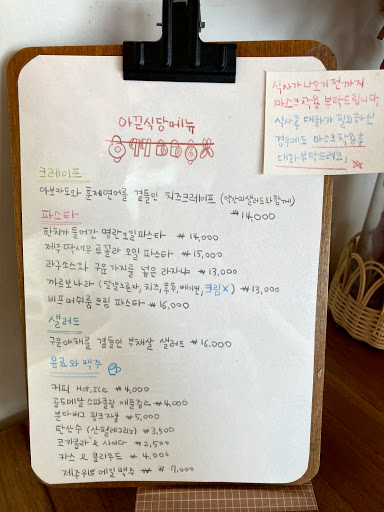 아낌식당메뉴
크레이프
아보카도와 훈제연어를 곁들인 치즈크레이프 (약간의샐러드와함께)
₩14,000
파스타
한치가 들어간 명란오일파스타 ₩14,000
제주딱새우 루꼴라 오일 파스타 ₩15,000
라구소스와 구운가지를 넣은 라자냐 ₩13,000
까르보나라 (달걀노른자, 치즈, 후추, 베이컨, 크림X) ₩13,000
비프머쉬룸크림 파스타 ₩16,000
샐러드
구운야채를 곁들인 부채살 샐러드 ₩16,000
음료와 맥주
커피 Hot, Ice ₩4,000
골드메달 스파클링 애플쥬스 ₩4,000
분다버그 핑크자몽 ₩5,000
탄산수 (산펠레그리노) ₩3,500
코카콜라 & 사이다 ₩2,500
카스 & 클라우드 ₩4,000
제주위트에일맥주 ₩ 7,000
식사가 나오기 전까지
마스크착용 부탁드립니다
식사후 대화가 필요하신
경우에도 마스크착용후
대화부탁드려요